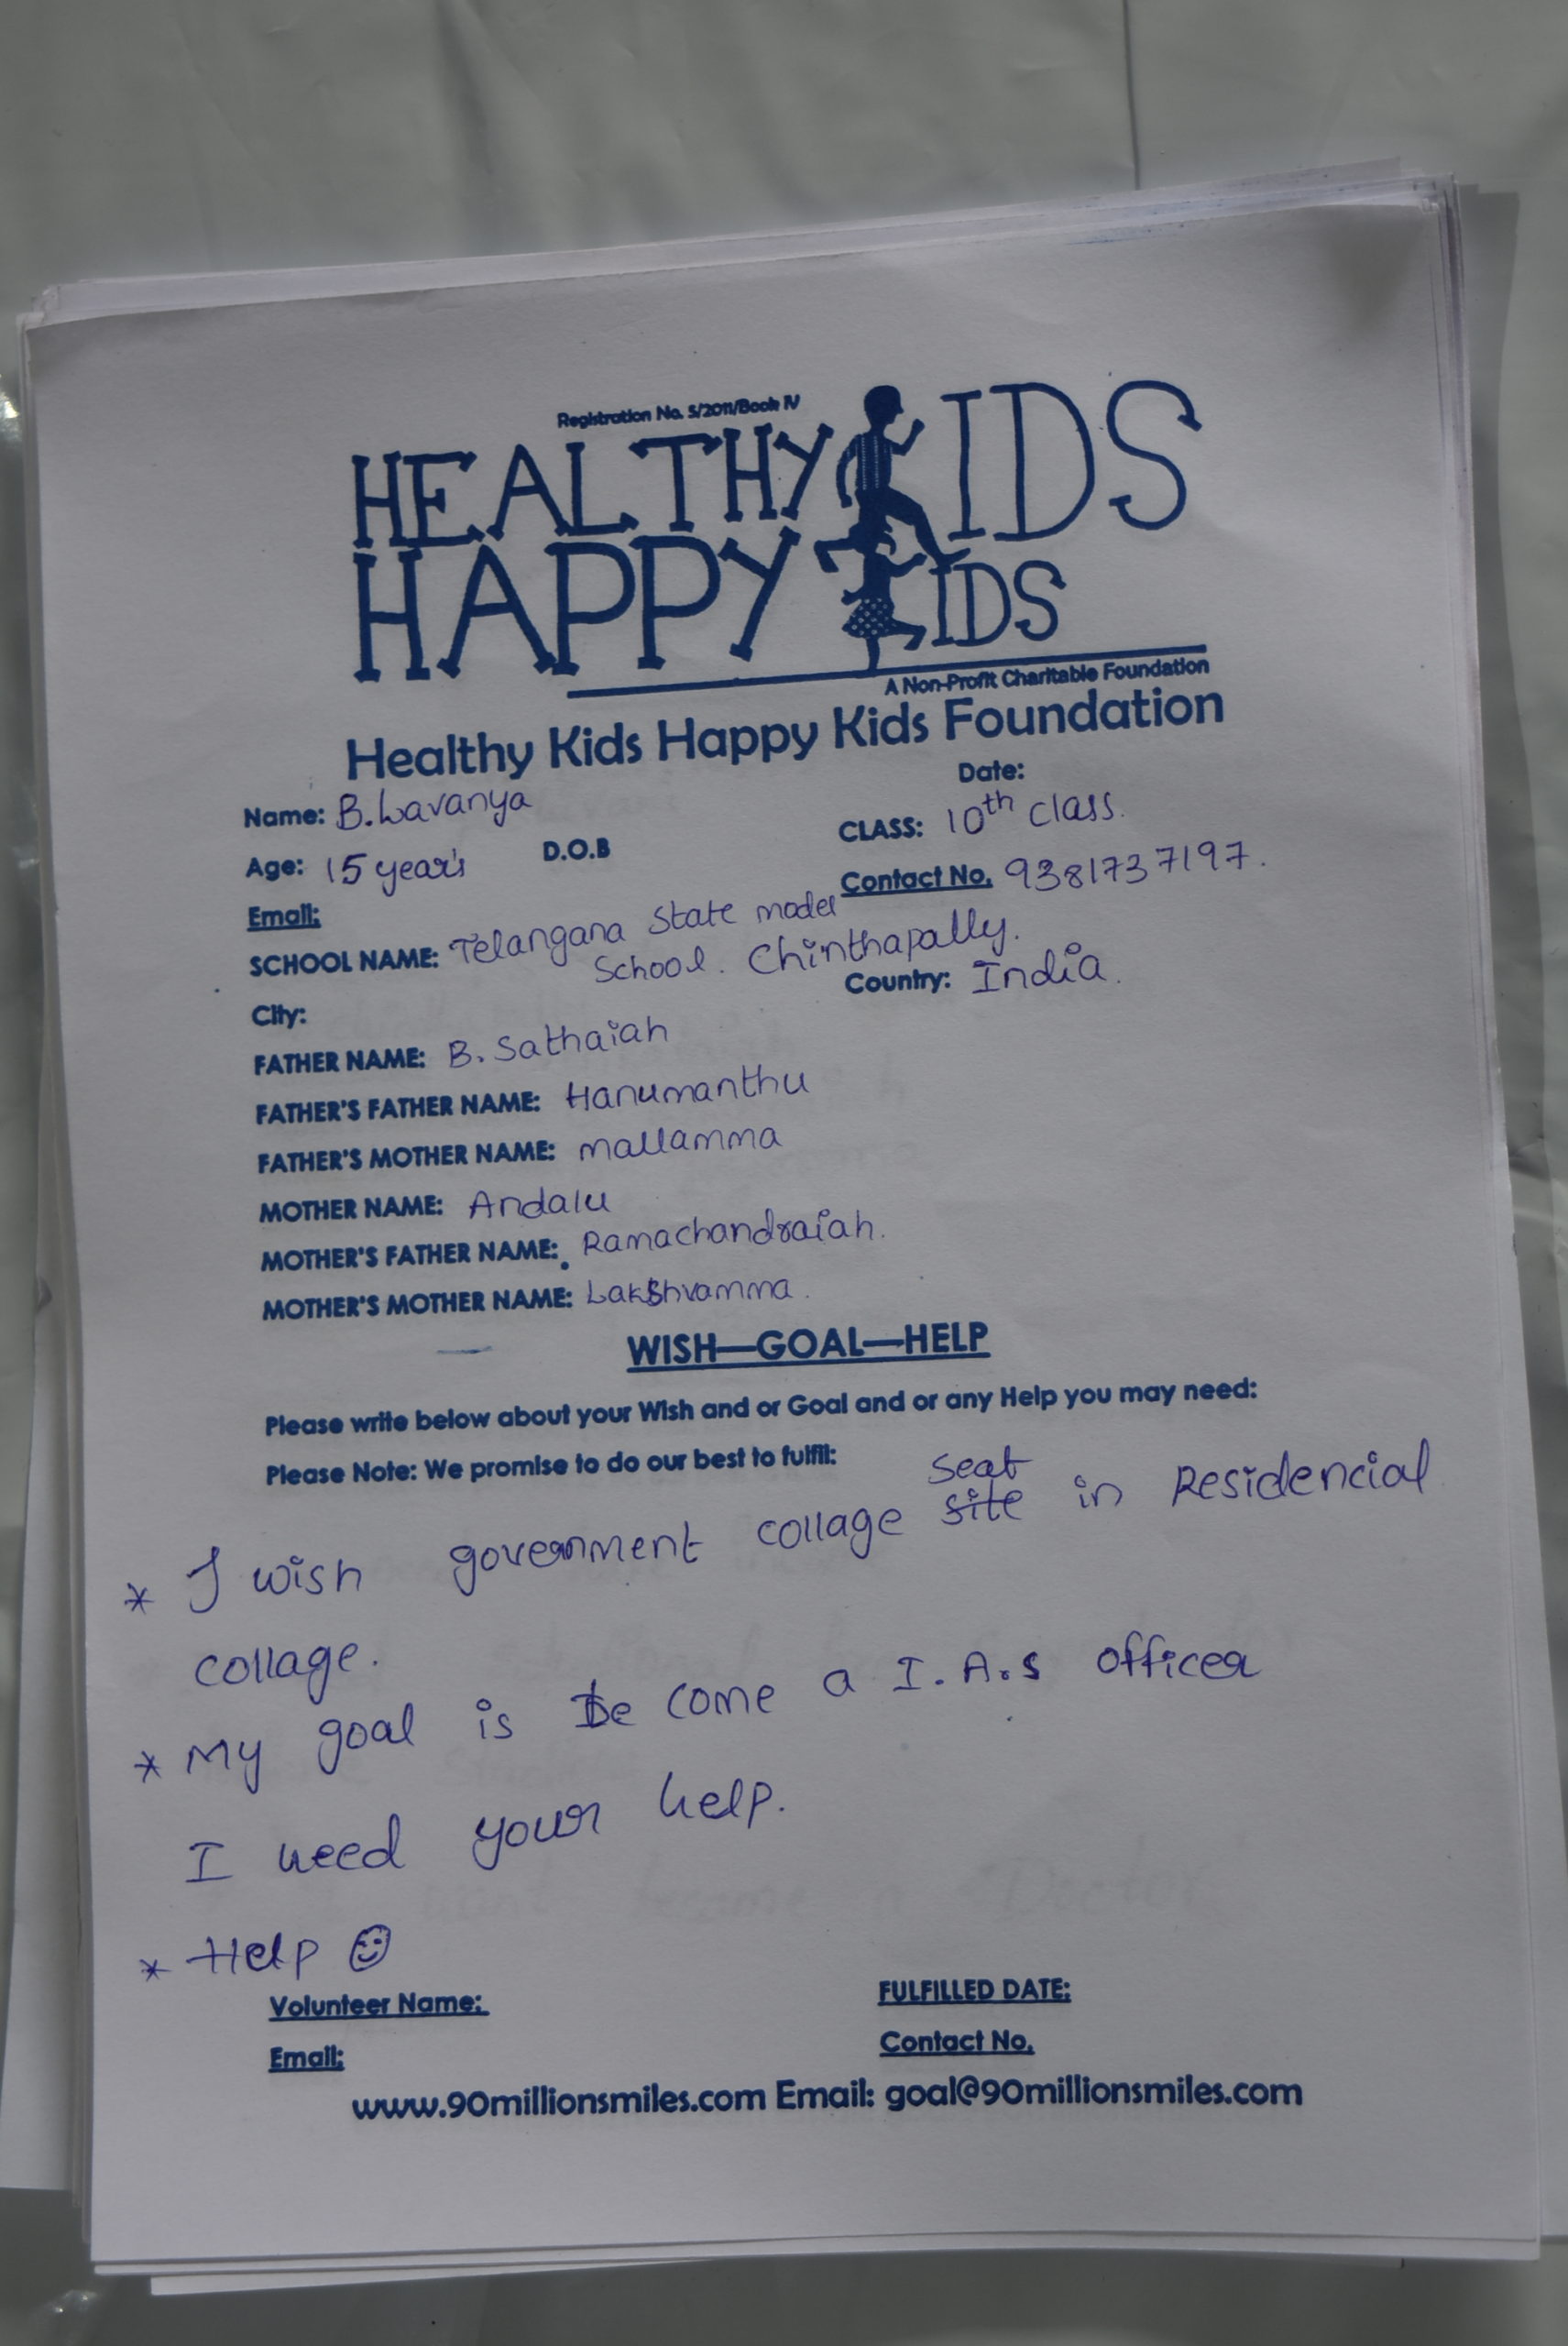 Registration No. 5/2011/Book IV
HEALTHY KIDS
HAPPY KIDS
A Non-Profit Charitable Foundation
Healthy Kids Happy Kids Foundation
Date:
Name: B.Lavanya
CLASS: 10th class.
Age: 15 year's D.O.B
Contact No. 9381737197.
Email:
SCHOOL NAME: Telangana State model
School. Chinthapally.
City: Country: India.
FATHER NAME: B. Sathaiah
FATHER'S FATHER NAME: Hanumanthu
FATHER'S MOTHER NAME: mallamma
MOTHER NAME: Andalu
MOTHER'S FATHER NAME: Ramachandraiah.
MOTHER'S MOTHER NAME: Lakshvamma.
WISH—GOAL—HELP
Please write below about your Wish and or Goal and or any Help you may need:
Please Note: We promise to do our best to fulfil:
seat
* I wish government collage site in Residencial
collage.
* My goal is be come a I.A.s officer
I need your help.
* Help ☺
Volunteer Name: FULFILLED DATE:
Email: Contact No.
www.90millionsmiles.com Email: goal@90millionsmiles.com